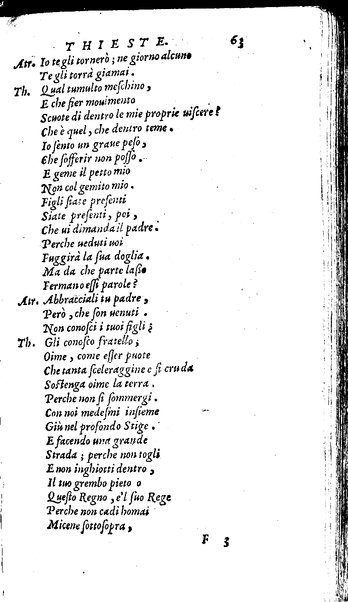 THIESTE. 63
Atr. Io te gli tornerò; ne giorno alcuno
Te gli torrà giamai.
Th. Qual tumulto meschino,
E che fier mouimento
Scuote di dentro le mie proprie uiscere?
Che è quel, che dentro teme.
Io sento un graue peso,
Che sofferir non posso.
E geme il petto mio
Non col gemito mio.
Figli siate presenti
Siate presenti, poi,
Che ui dimanda il padre.
Perche ueduti uoi
Fuggirà la sua doglia.
Ma da che parte lasso
Fermano essi parole?
Atr. Abbracciali tu padre,
Però, che son uenuti.
Non conosci i tuoi figli?
Th. Gli conosco fratello;
Oime, come esser puote
Che tanta sceleraggine e sì cruda
Sostenga oime la terra.
Perche non si sommergi.
Con noi medesmi insieme
Giù nel profondo Stige.
E facendo una grande
Strada; perche non togli
E non inghiotti dentro,
Il tuo grembo pieto o
Questo Regno, e'l suo Rege
Perche non cadi homai
Micene sottosopra,
F 3